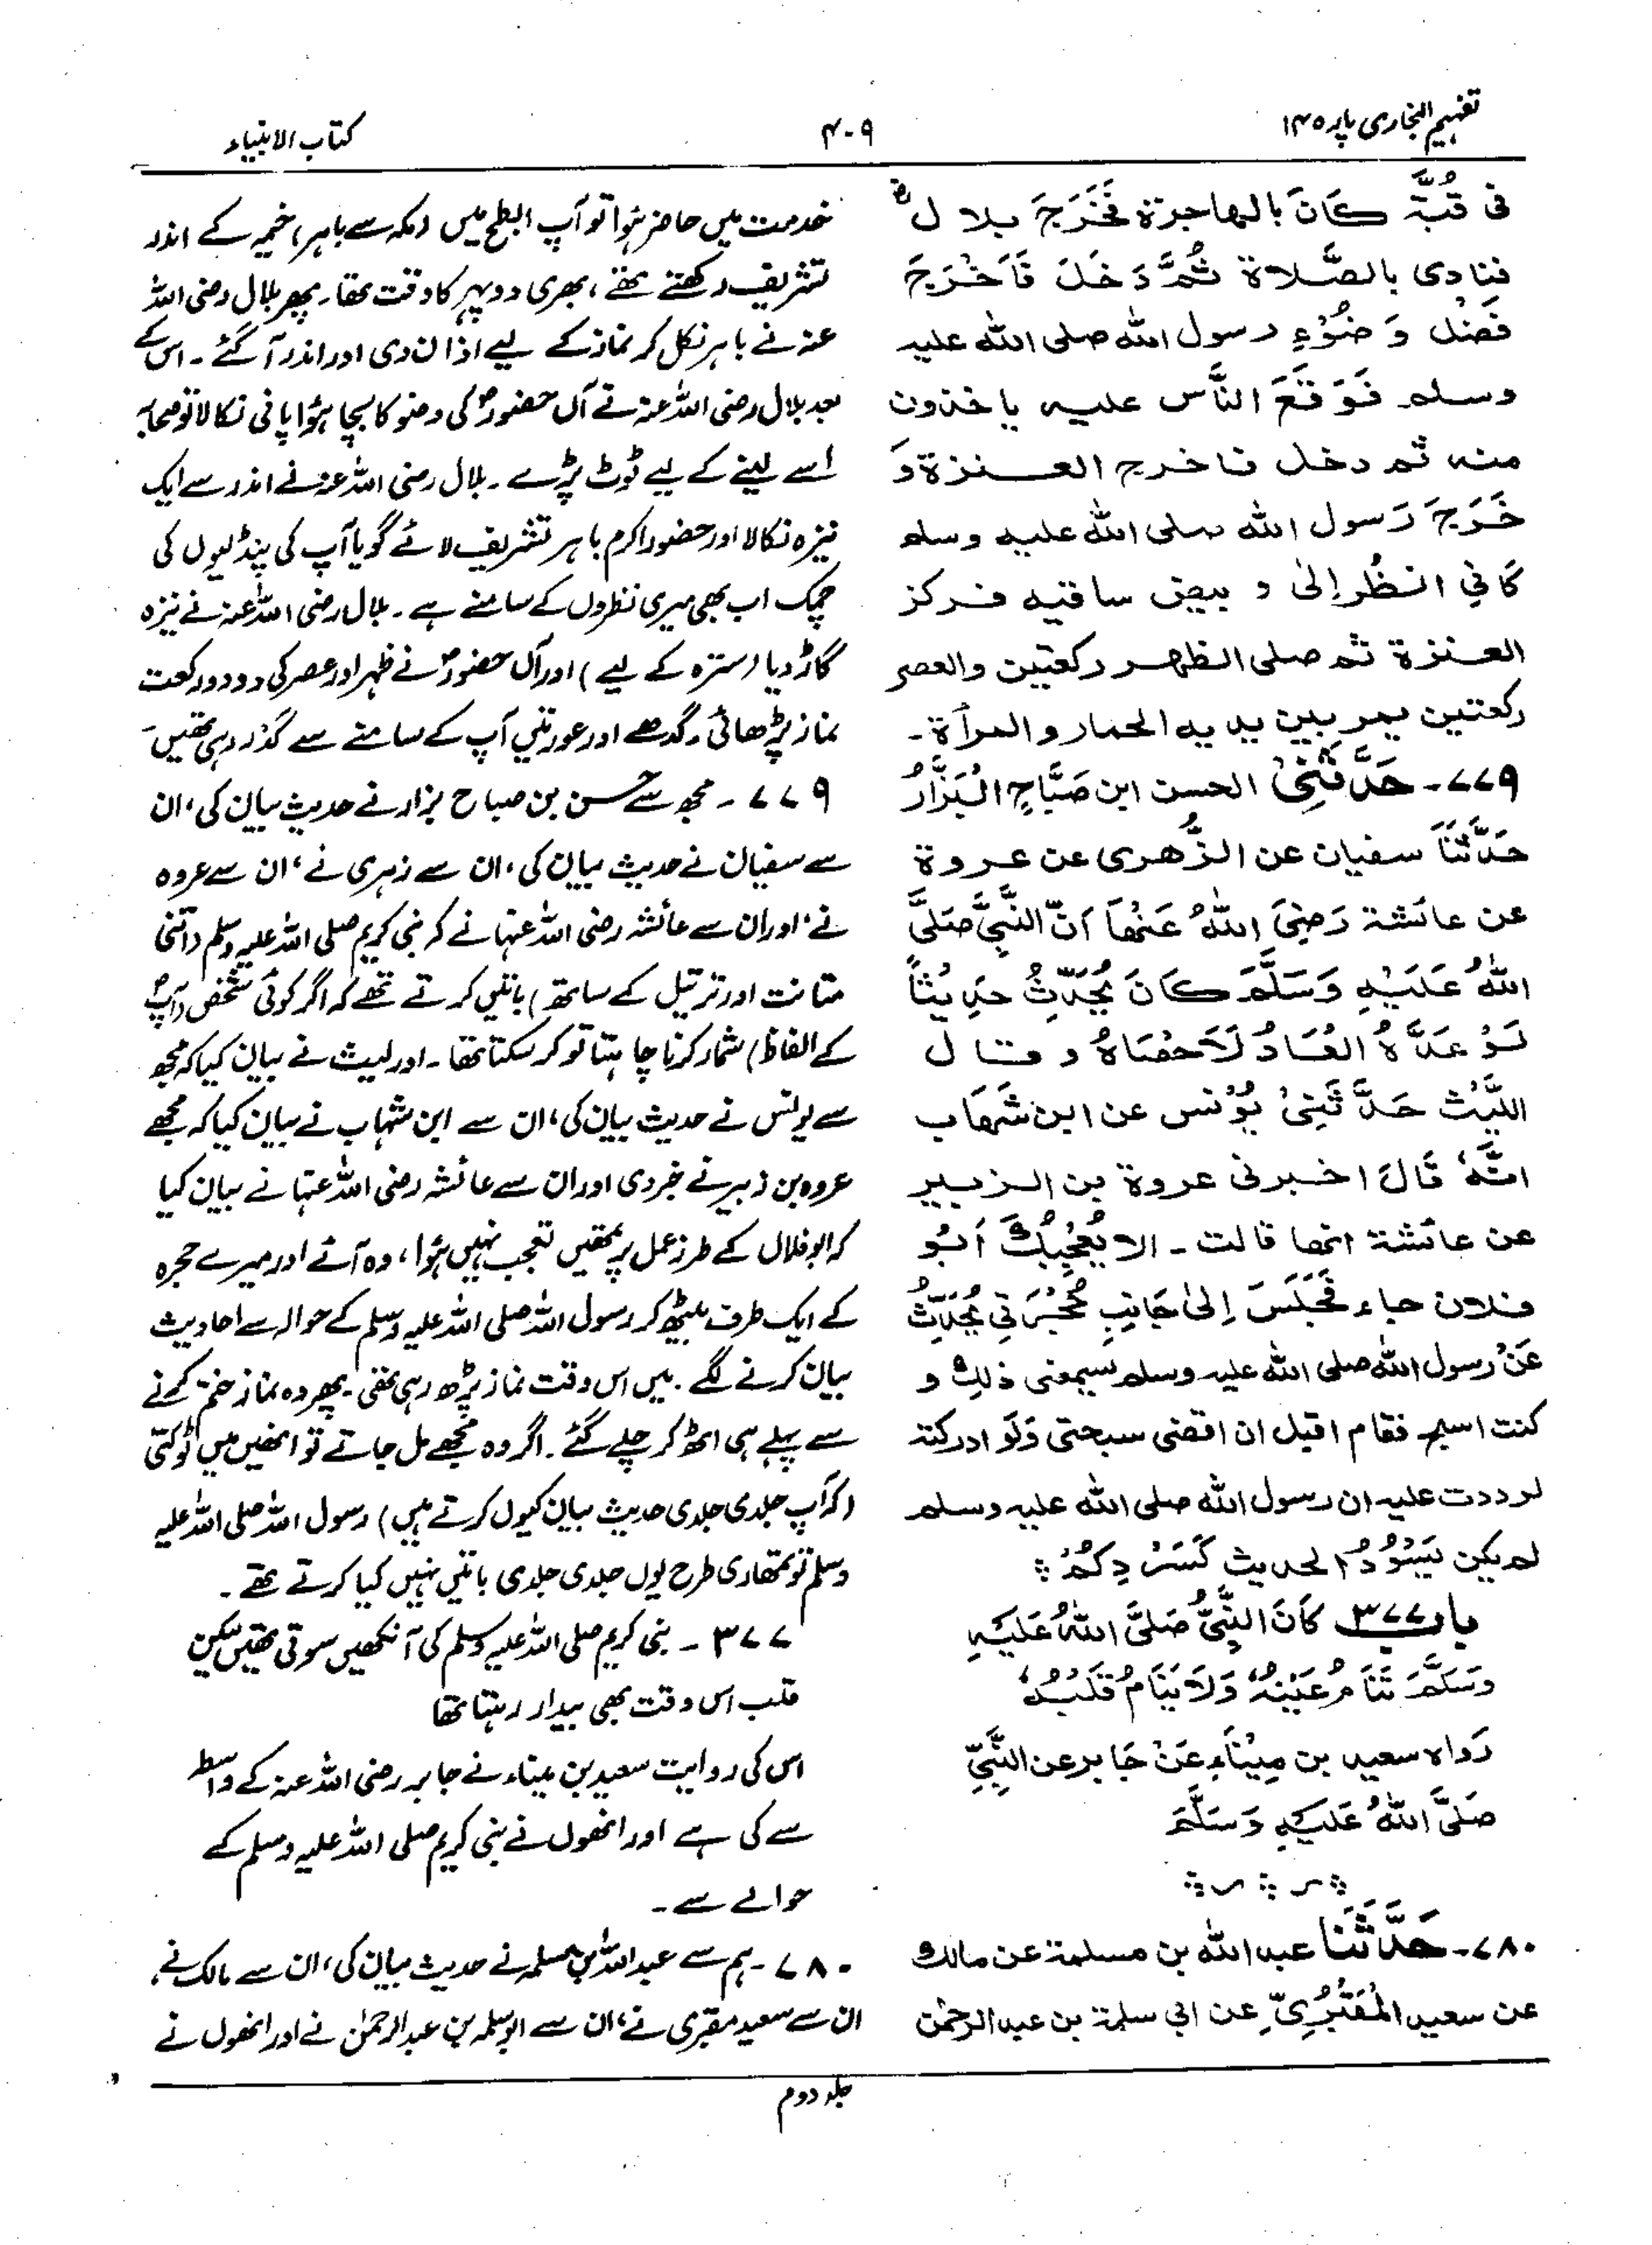 تفہیم البخاری پارہ ۱۴
۴۰۹
کتاب الانبیاء
فى قُبَّۃٍ كَانَ بالهاجرة فَخَرَجَ بلا لٌ
فنادى بالصَّلاة ثُمَّ دَخَلَ فَاَخْرَجَ
فَضْلَ وَضُوْءِ رسول الله صلى الله عليه
وسلم فَوَقَعَ النَّاس عليه ياخذون
منه ثم دخل فاخرج العنزة وَ
خَرَجَ رَسول الله صلى الله عليه وسلم
كَاَنِّي انظُر اِلىٰ وبيص ساقيه فركز
العنزة ثم صلى الظهر ركعتين والعصر
ركعتين يمر بين يديه الحمار والمرأة۔
۷۷۹۔ حَدَّثَنِىْ الحسن ابن صَبَّاحٍ الْبَزَّارُ
حَدَّثَنَا سفيان عن الزُّهرى عن عروة
عن عائشة رَضِىَ اللهُ عَنْهَا اَنَّ النَّبِىَّ صَلَّى
اللهُ عَلَيْهِ وَسَلَّمَ كَانَ يُحَدِّثُ حَدِيْثًا
لَوْ عَدَّهُ الْعَادُّ لَاَحْصَاهُ وقال
اللَّيْثُ حَدَّثَنِىْ يُوْنس عن ابن شَهَاب
اَنَّهٗ قَالَ اخبرنى عروة بن الزبير
عن عائشة انها قالت۔ الا يُعْجِبُكَ اَبُوْ
فلان جاء فَجَلَسَ اِلىٰ جَانِبِ حُجْرَتِيْ يُحَدِّثُ
عَنْ رسول الله صلى الله عليه وسلم يسمعنى ذلك و
كنت اسبح فقام قبل ان اقضى سبحتى وَلَو ادركته
لرددت عليه ان رسول الله صلى الله عليه وسلم
لم يكن يَسْرُدُ الحديث كَسَرْدِكُمْ ؞
باب ۳۷۷ كَانَ النَّبِىُّ صَلَّى اللهُ عَلَيْهِ
وَسَلَّمَ تَنَامُ عَيْنُهٗ وَلَا يَنَامُ قَلْبُهٗ
رَواه سعيد بن مِيْنَاءٍ عَنْ جَابر عن النَّبِيِّ
صَلَّى اللهُ عَلَيْهِ وَسَلَّمَ
۷۸۰۔ حَدَّثَنَا عبد الله بن مسلمة عن مالك
عن سعيد الْمَقْبُرِيِّ عن ابي سلمة بن عبد الرحمٰن
خدمت میں حاضر ہُوا تو آپ ابطح میں (مکہ سے باہر) خیمہ کے اندر
تشریف رکھتے تھے، بھری دوپہر کا وقت تھا۔ پھر بلال رضی اللہ
عنہ نے باہر نکل کر نماز کے لیے اذان دی اور اندر آ گئے۔ اس کے
بعد بلال رضی اللہ عنہ نے آں حضورؐ کی وضو کا بچا ہوُا پانی نکالا تو صحابہ
اسے لینے کے لیے ٹوٹ پڑے۔ بلال رضی اللہ عنہ نے اندر سے ایک
نیزہ نکالا اور حضور اکرم باہر تشریف لائے گویا آپ کی پنڈلیوں کی
چمک اب بھی میری نظروں کے سامنے ہے۔ بلال رضی اللہ عنہ نے نیزہ
گاڑ دیا (سترہ کے لیے) اور آں حضورؐ نے ظہر اور عصر کی دو دو رکعت
نماز پڑھائی، گدھے اور عورتیں آپ کے سامنے سے گذر رہی تھیں۔
۷۷۹۔ مجھ سے حسن بن صباح بزار نے حدیث بیان کی، ان
سے سفیان نے حدیث بیان کی، ان سے زہری نے، ان سے عروہ
نے، اور ان سے عائشہ رضی اللہ عنہا نے کہ نبی کریم صلی اللہ علیہ وسلم (اتنی
متانت اور ترتیل کے ساتھ) باتیں کرتے تھے کہ اگر کوئی شخص (آپؐ
کے الفاظ) شمار کرنا چاہتا تو کر سکتا تھا۔ اور لیث نے بیان کیا کہ مجھ
سے یونس نے حدیث بیان کی، ان سے ابن شہاب نے بیان کیا کہ مجھے
عروہ بن زبیر نے خبر دی اور ان سے عائشہ رضی اللہ عنہا نے بیان کیا
کہ ابو فلاں کے طرز عمل پر تمھیں تعجب نہیں ہُوا، وہ آئے اور میرے حجرہ
کے ایک طرف بیٹھ کر رسول اللہ صلی اللہ علیہ وسلم کے حوالہ سے احادیث
بیان کرنے لگے۔ میں اس وقت نماز پڑھ رہی تھی۔ پھر وہ نماز ختم کرنے
سے پہلے ہی اٹھ کر چلے گئے۔ اگر وہ مجھے مل جاتے تو انھیں میں ٹوکتی
(کہ آپ جلدی جلدی حدیث بیان کیوں کرتے ہیں) رسول اللہ صلی اللہ علیہ
وسلم تو تمھاری طرح یوں جلدی جلدی باتیں نہیں کیا کرتے تھے۔
۳۷۷۔ نبی کریم صلی اللہ علیہ وسلم کی آنکھیں سوتی تھیں لیکن
قلب اس وقت بھی بیدار رہتا تھا
اس کی روایت سعید بن میناء نے جابر رضی اللہ عنہ کے واسطہ
سے کی ہے اور انھوں نے نبی کریم صلی اللہ علیہ وسلم کے
حوالے سے۔
۷۸۰۔ ہم سے عبد اللہ بن مسلمہ نے حدیث بیان کی، ان سے مالک نے،
ان سے سعید مقبری نے، ان سے ابو سلمہ بن عبد الرحمٰن نے اور انھوں نے
جلد دوم